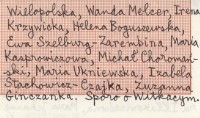 Wielopolska, Wanda Melcer, Irena
Krzywicka, Helena Boguszewska,
Ewa Szelburg-Zarembina, Maria
Kasprowiczowa, Michał Choromań-
ski, Maria Ukniewska, Izabela
Stachowicz-Czajka, Zuzanna
Ginczanka. Sporo o Witkacym.